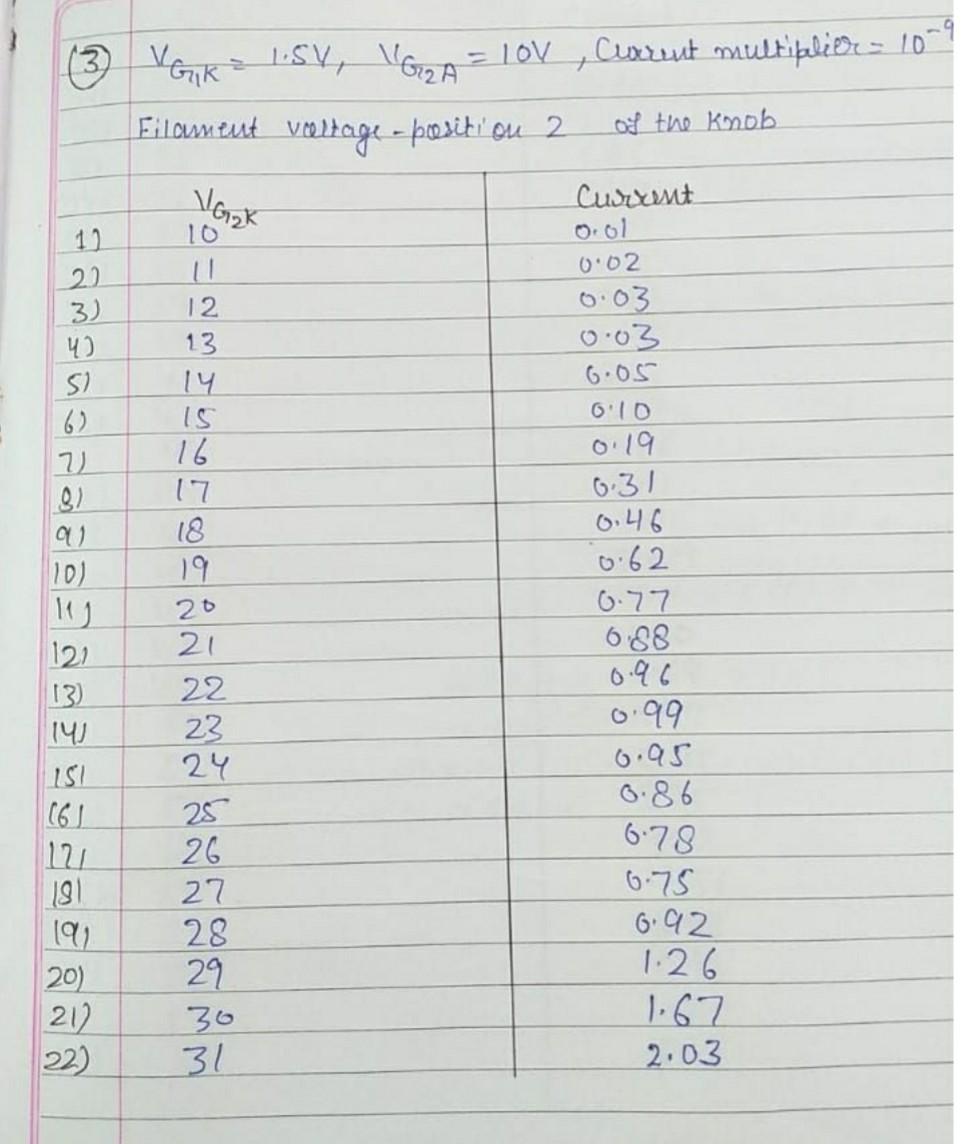 (3) VG1K = 1.5V, VG2A = 10V, Current multiplier = 10^-9
Filament voltage - position 2 of the Knob
VG2K Current
1) 10 0.01
2) 11 0.02
3) 12 0.03
4) 13 0.03
5) 14 0.05
6) 15 0.10
7) 16 0.19
8) 17 0.31
9) 18 0.46
10) 19 0.62
11) 20 0.77
12) 21 0.88
13) 22 0.96
14) 23 0.99
15) 24 0.95
16) 25 0.86
17) 26 0.78
18) 27 0.75
19) 28 0.92
20) 29 1.26
21) 30 1.67
22) 31 2.03